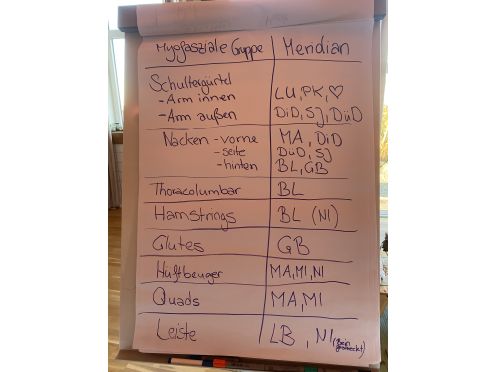 Myofasziale Gruppe | Meridian
Schultergürtel
- Arm innen | LU, PK, ♡
- Arm außen | DiD, SJ, DüD
Nacken - vorne | MA, DiD
- seite | DüD, SJ
- hinten | BL, GB
Thoracolumbar | BL
Hamstrings | BL (NI)
Glutes | GB
Hüftbeuger | MA, MI, NI
Quads | MA, MI
Leiste | LB, NI (Bein gestreckt)